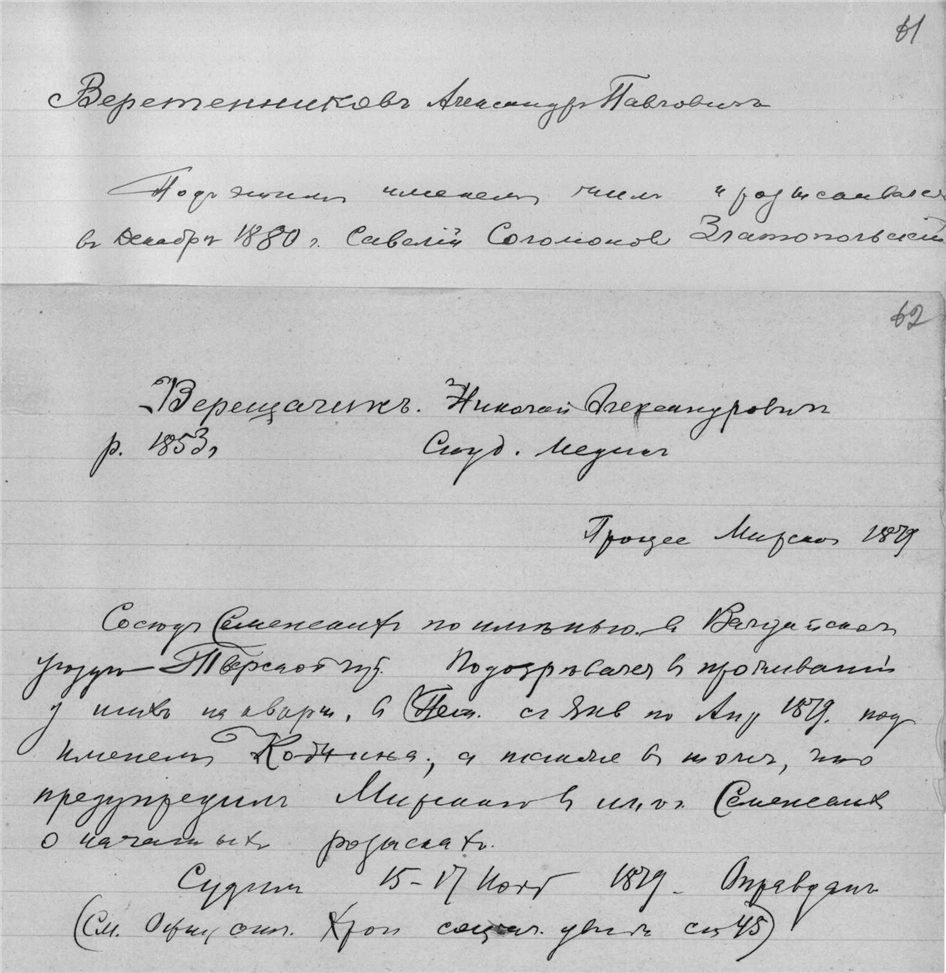 61
Веретенниковъ Александръ Павловичъ
Подъ этимъ именемъ жилъ и разыскивался
въ декабрѣ 1880 г. Савелій Соломонов Златопольскій
62
Верещагинъ. Николай Александровичъ
р. 1853 г. Студ. Медикъ
Процес Мирско 1879
Сосѣдъ Семенскихъ по имѣнью в Валдайском
уѣздѣ Тверской губ. Подозрѣвался в проживаніи
у нихъ на кварт. в Пет. съ Янв по Апр 1879. под
именемъ а также в томъ, что
предупредилъ Мирскаго в им. Семенских
о начатыхъ розыскахъ.
Судим 15-17 Нояб 1879. Оправданъ
(См. Хрон социал. движ. ст 45)